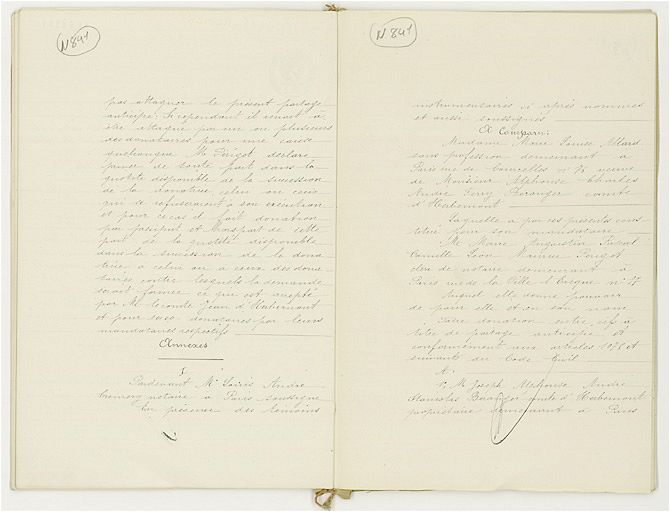 N 841
pas attaquer le présent partage
anticipé. Si cependant il venait à
être attaqué par un ou plusieurs
des donataires pour une cause
quelconque Mr Pingot déclare
priver de toute part dans la
quotité disponible de la succession
de la donatrice celui ou ceux
qui se refuseraient à son exécution
et pour ce cas il fait donation
par préciput et hors part de cette
part de la quotité disponible
dans la succession de la dona
trice à celui ou à ceux des dona
taires contre lesquels la demande
serait formée ce qui est accepté
par Mr le comte Jean d'Herbemont
et pour ses donataires par leurs
mandataires respectifs
Annexes
I
Pardevant Me Louis André
notaire à Paris soussigné
En présence des témoins
N 841
instrumentaires ci après nommés
et aussi soussignés
A Comparu:
Madame Marie Louise Allard
sans profession demeurant à
Paris rue de Courcelles no 75 veuve
de Monsieur Alphonse Charles
André Ferry Béranger comte
d'Herbemont
Laquelle a par ces présentes cons
titué pour son mandataire
Mr Marie Augustin
Camille Léon Maurice Pingot
clerc de notaire demeurant à
Paris rue de la Ville l'Evêque no 27
Auquel elle donne pouvoir
de pour elle et en son nom
Faire donation entre vifs à
titre de partage anticipé et
conformément aux articles 1075 et
suivants du Code Civil
A:
1o M Joseph Alphonse André
Stanislas Béranger comte d'Herbemont
propriétaire demeurant à Paris